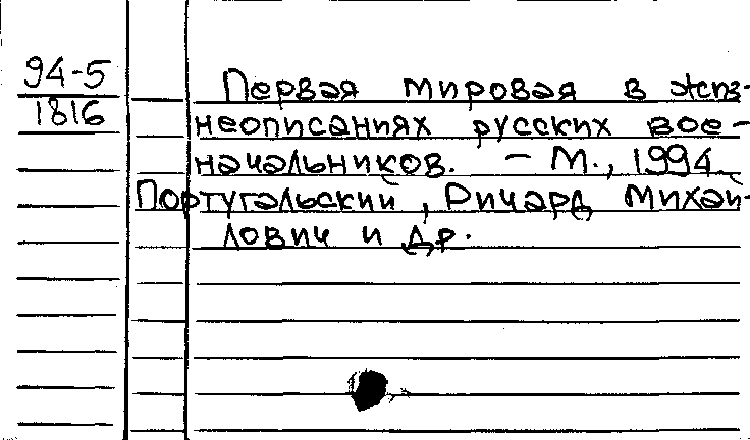 94-5
1816
Первая мировая в жиз-
неописаниях русских вое-
начальников. - М., 1994.
Португальский, Ричард Михай-
лович и др.